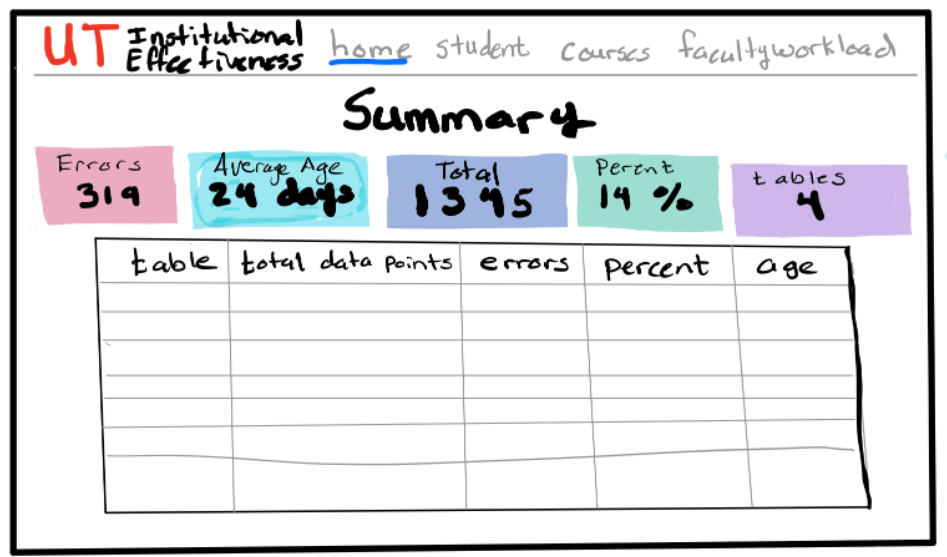 UT Institutional
Effectiveness
home student courses facultyworkload
Summary
Errors
319
Average Age
24 days
Total
1345
Percnt
14 %
tables
4
table total data points errors percent age